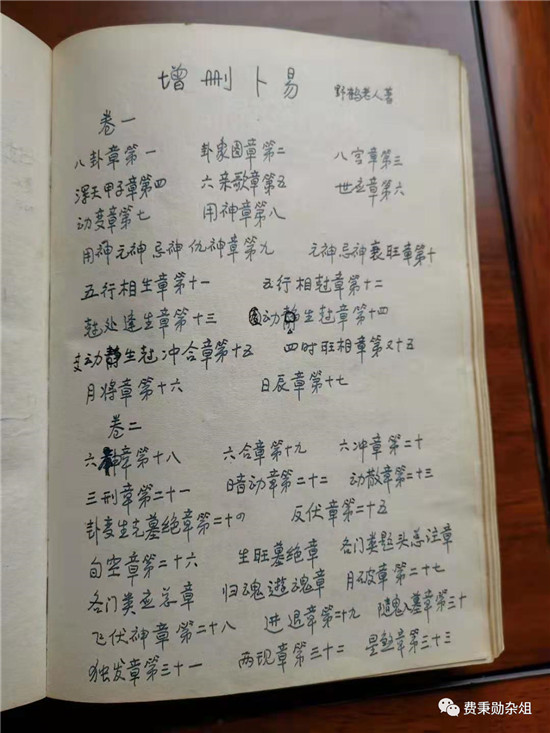 增删卜易 野鹤老人著
卷一
八卦章第一 卦象图章第二 八宫章第三
浑天甲子章第四 六亲歌章第五 世应章第六
动变章第七 用神章第八
用神元神忌神仇神章第九 元神忌神衰旺章第十
五行相生章第十一 五行相尅章第十二
尅处逢生章第十三 动静生尅章第十四
动静生尅冲合章第十五 四时旺相章第又十五
月将章第十六 日辰章第十七
卷二
六章第十八 六合章第十九 六冲章第二十
三刑章第二十一 暗动章第二十二 动散章第二十三
卦变生克墓绝章第二十四 反伏章第二十五
旬空章第二十六 生旺墓绝章 各门类题头总注章
各门类应总章 归魂遊魂章 月破章第二十七
飞伏神章第二十八 进退章第二十九 随鬼入墓章第三十
独发章第三十一 两现章第三十二 星煞章第三十三
费秉勋杂俎